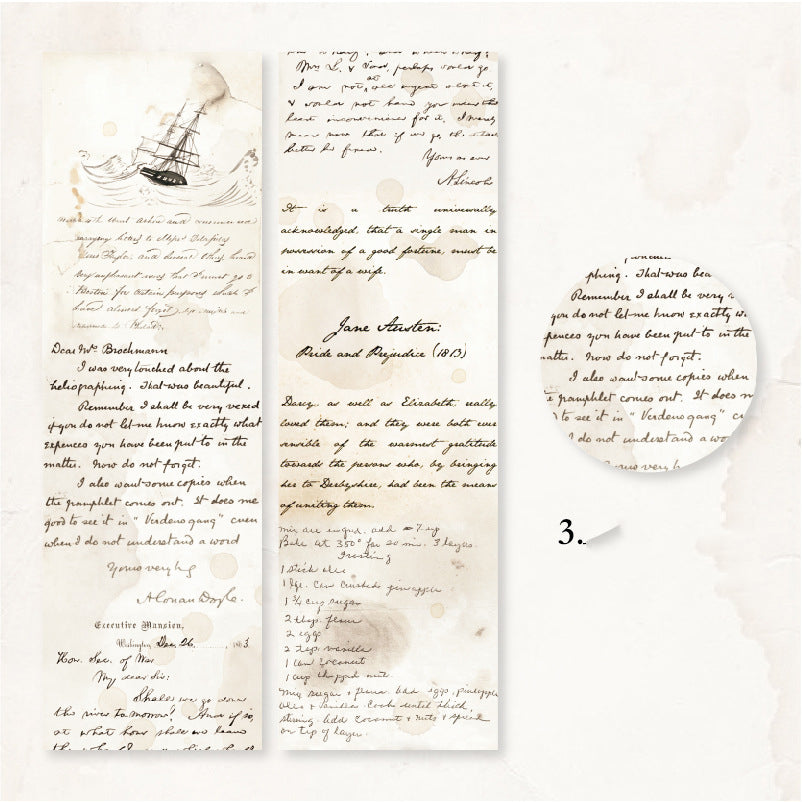 Dear Mrs Brochmann
I was very touched about the
heliographing. That was beautiful.
Remember I shall be very vexed
if you do not let me know exactly what
expences you have been put to in the
matter. Now do not forget.
I also want some copies when
the pamphlet comes out. It does me
good to see it in "Verdens gang" even
when I do not understand a word
Yours very
A Conan Doyle.
Executive Mansion,
Washington, Dec. 26, 1863.
Hon. Sec. of War
My dear Sir:
Shall we go down
the river to-morrow? And if so,
at what hour shall we leave
Mrs L. & perhaps would go
I am not at all urgent about it,
& would not have you incur the
least inconvenience for it. I merely
mean now that if we go, the
better be fixed.
Yours as ever
A. Lincoln
It is a truth universally
acknowledged, that a single man in
possession of a good fortune, must be
in want of a wife.
Jane Austen:
Pride and Prejudice (1813)
Darcy, as well as Elizabeth, really
loved them; and they were both ever
sensible of the warmest gratitude
towards the persons who, by bringing
her to Derbyshire, had been the means
of uniting them.
Bake at 350° for 20 min. 3 layers.
1 stick oleo
1 lge. can crushed pineapple
1 3/4 cup sugar
2 tbsp. flour
2 eggs
2 tsp. vanilla
1 can coconut
1 cup chopped nuts
Mix sugar & flour add eggs, pineapple
oleo & vanilla. Cook until thick,
stirring. Add coconut & nuts & spread
on top of layer.
phing. That was bea
Remember I shall be very
you do not let me know exactly w
pences you have been put to in the
matter. Now do not forget.
I also want some copies when
e pamphlet comes out. It does m
to see it in "Verdens gang"
I do not understand a wo
Yours very
3.